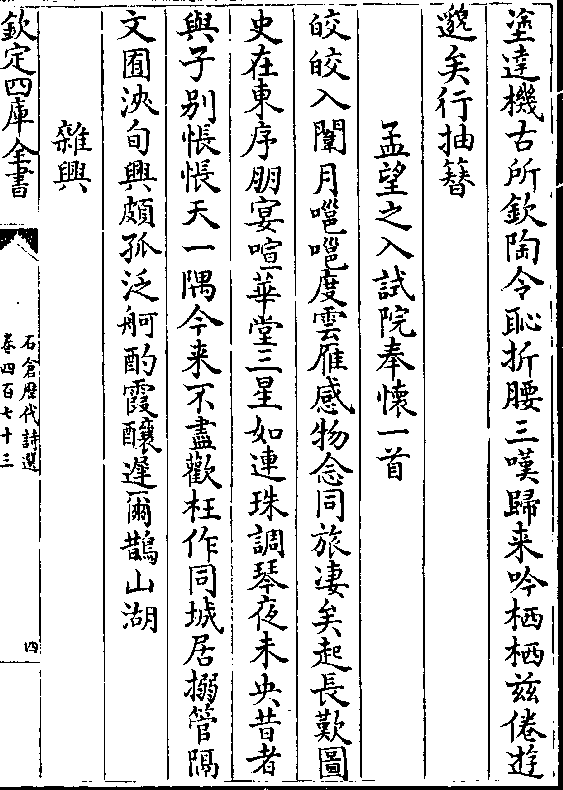 塗達機古所欽陶令恥折腰三嘆歸来吟栖栖兹倦遊
邈矣行抽簪
孟望之入試院奉懷一首
皎皎入闈月嗈嗈度雲雁感物念同旅凄矣起長歎圖
史在東序朋宴喧華堂三星如連珠調琴夜未央昔者
與子别悵悵天一隅今来不盡歡枉作同城居搦管隔
文囿浹旬興頗孤泛舸酌霞釀遲爾鵲山湖
雜興
欽定四庫全書
石倉歴代詩選
卷四百七十三
四